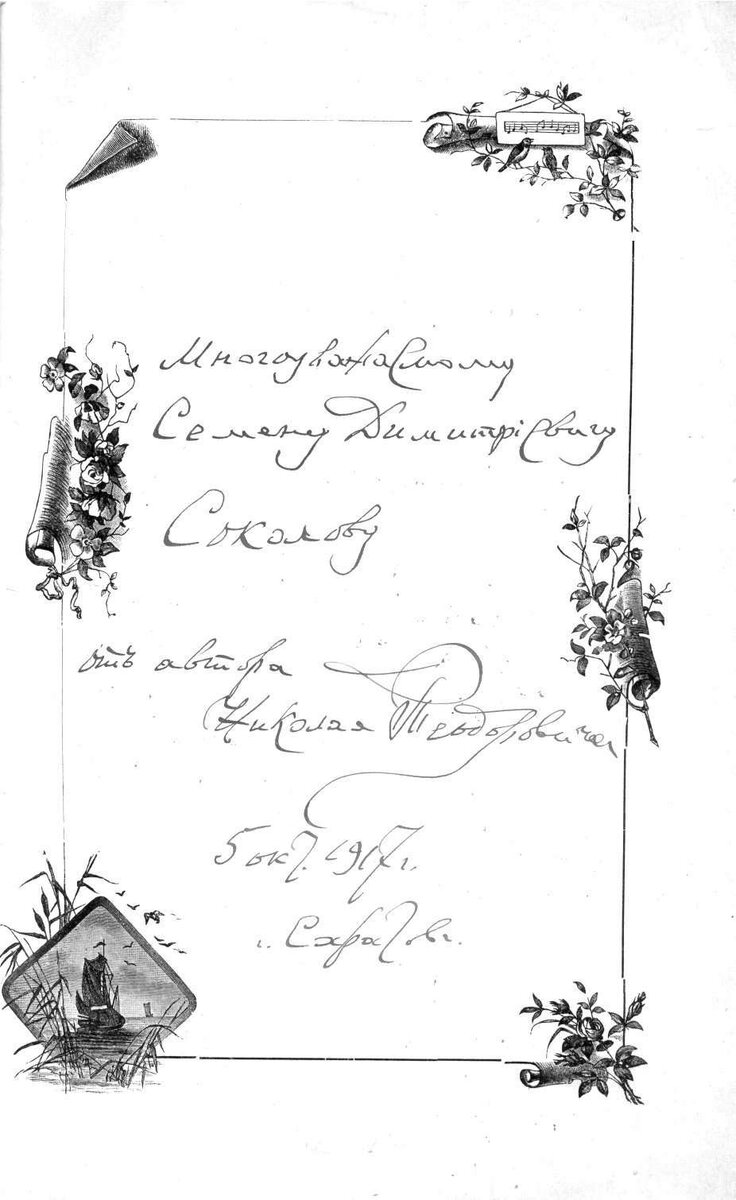 Многоуважаемому
Семену Димитріевичу
Соколову
отъ автора
Николая Теодоровича
5 окт. 1917 г.
г. Саратов.